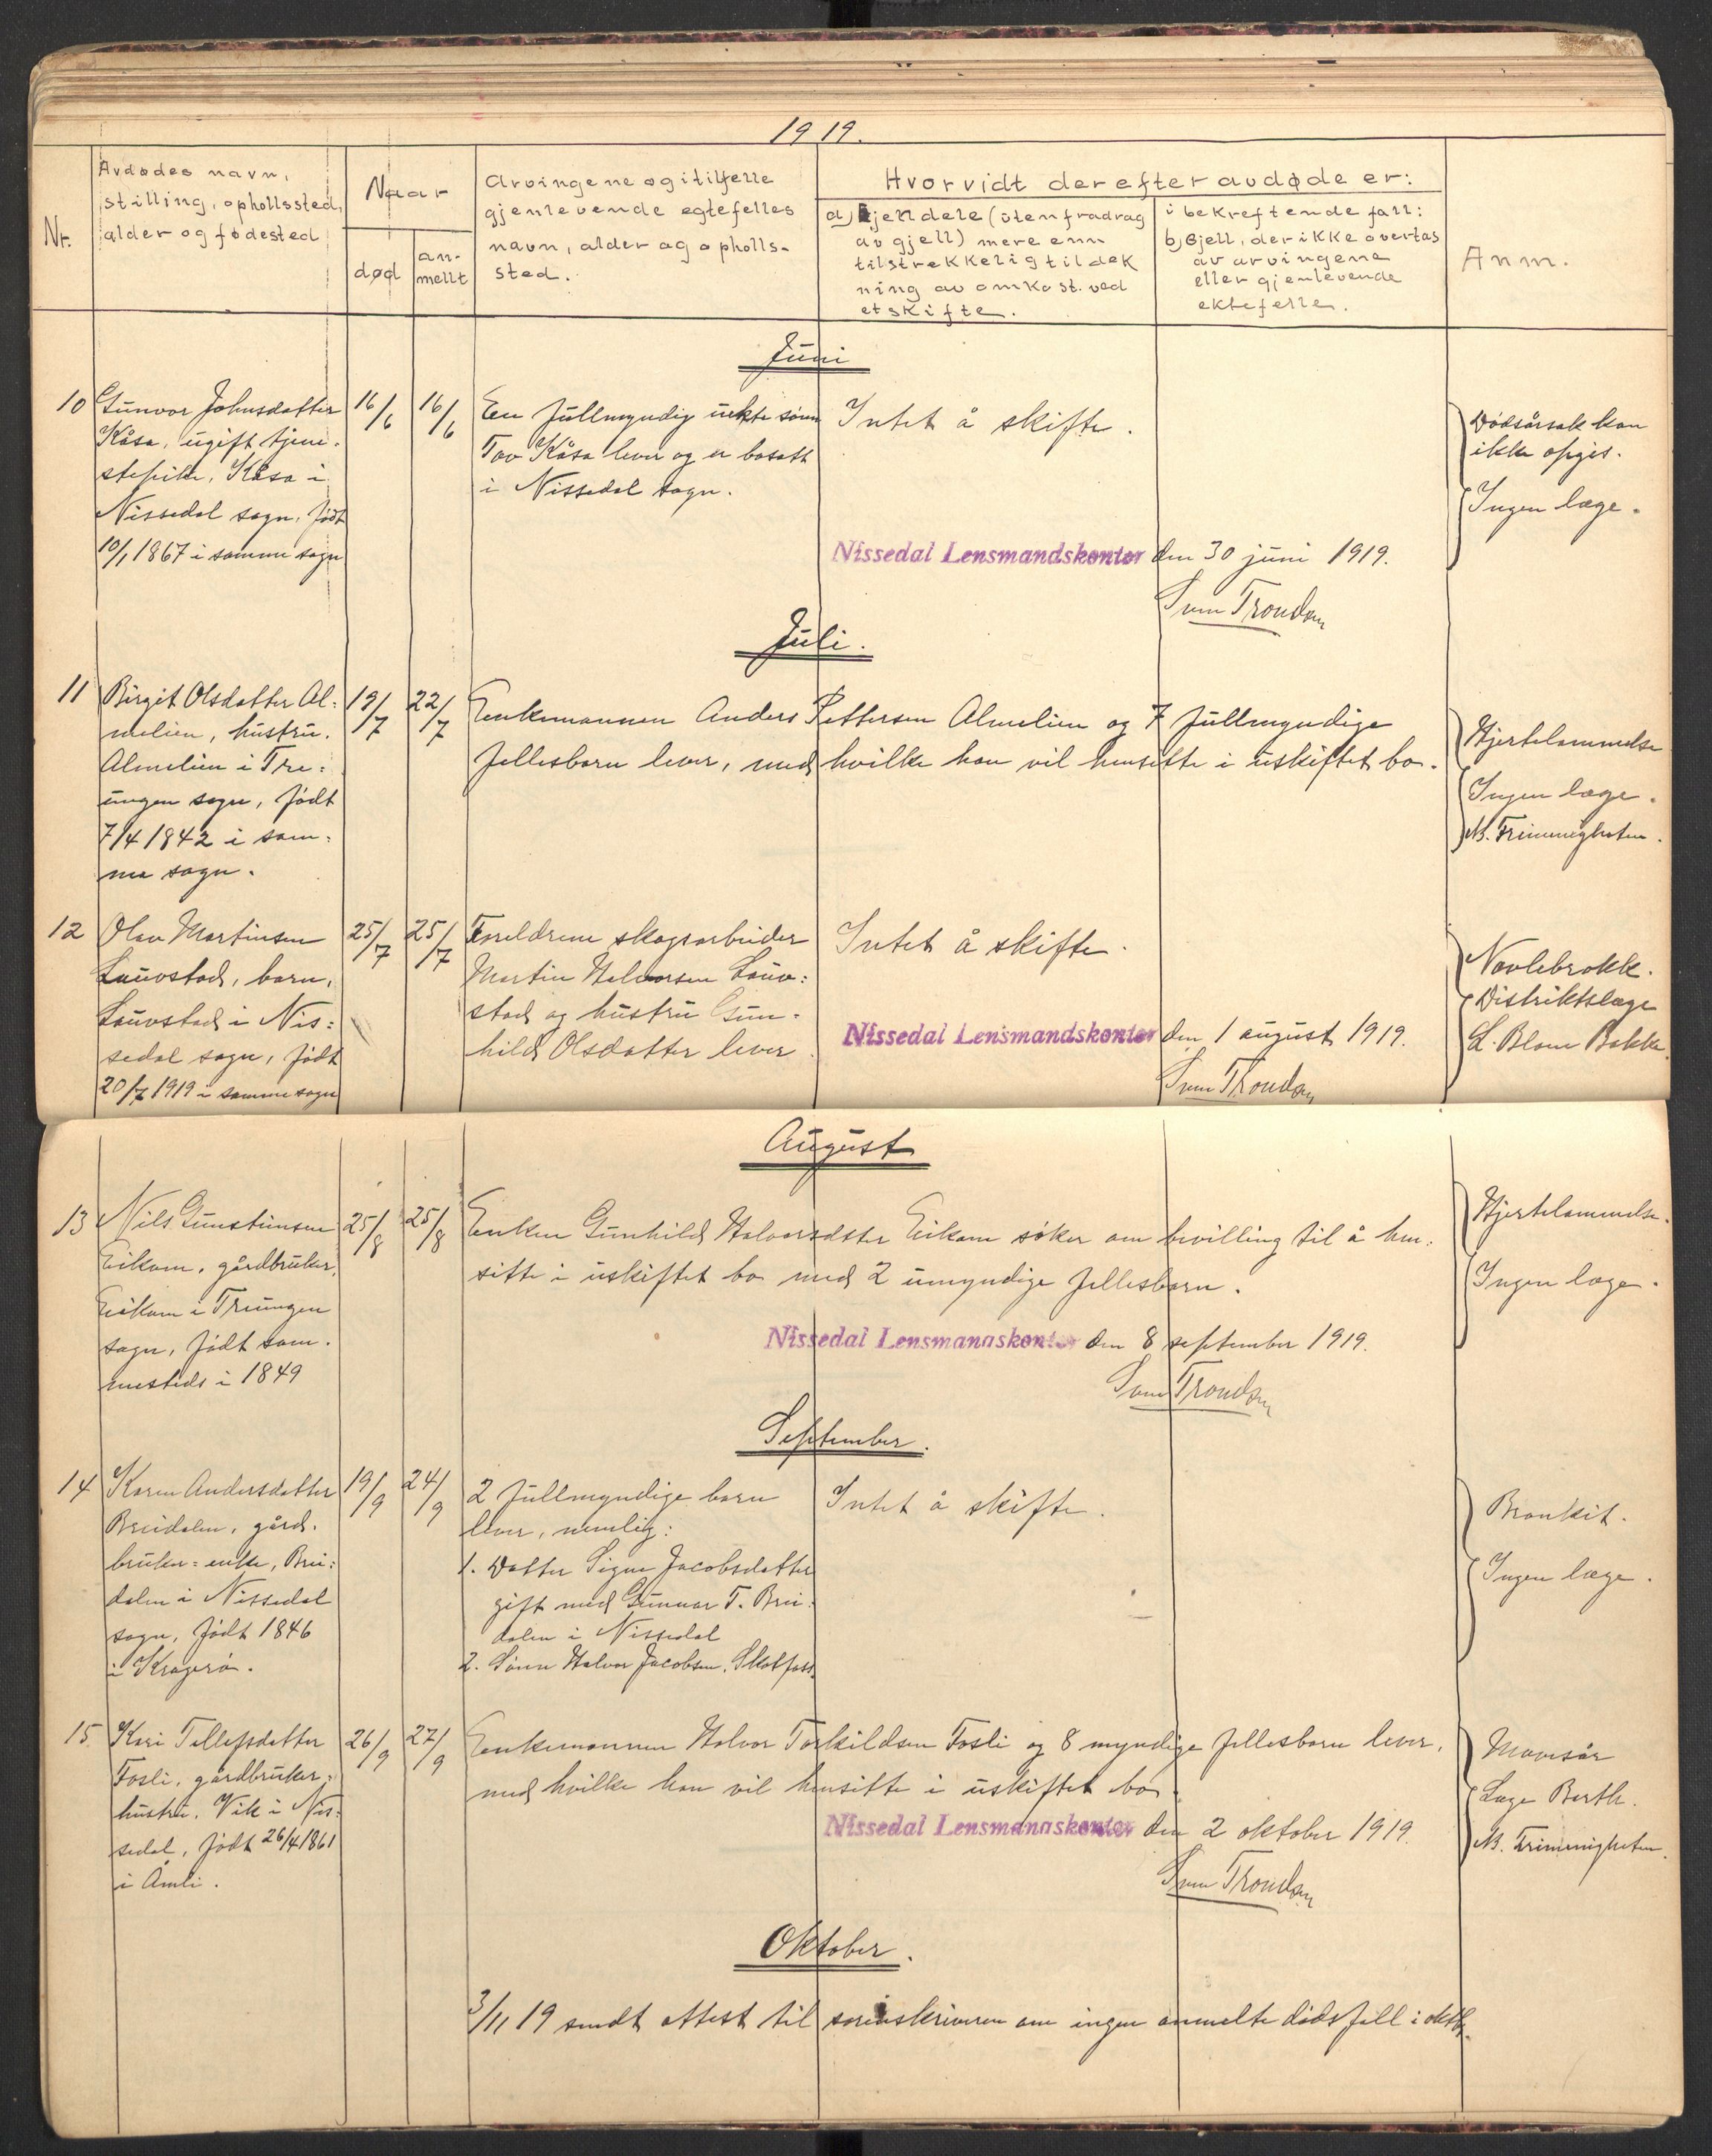 1919.
Nr.
Avdødes navn,
stilling, opholdssted,
alder og fødested
Naar
død
an-
mellt
Arvingene og i tilfelle
gjenlevende egtefelles
navn, alder og opholls-
sted.
Hvorvidt der efter avdøde er:
a) Ejendele (uten fradrag
av gjell) mere enn
tilstrekkelig til dek
ning av omkost. ved
et skifte.
i bekreftende fall:
b) Gjell, der ikke overtas
av arvingene
eller gjenlevende
ektefelle.
Anm.
Juni
10
Gunvor Johnsdatter
Kåsa, ugift tjene-
stepike, Kåsa i
Nissedal sogn, født
10/1 1867 i samme sogn
16/6
16/6
En fullmyndig uekte sønn
Tov Kåsa lever og er bosatt
i Nissedal sogn.
Intet å skifte.
Dødsårsak kan
ikke opgis.
Ingen læge.
Nissedal Lensmandskontor den 30 juni 1919.
Sven Trondsen
Juli.
11
Birgit Olsdatter Al-
melien, hustru.
Almelien i Tre:
ungen sogn, født
7/4 1842 i sam:
me sogn.
19/7
22/7
Enkemannen Anders Pettersen Almelien og 7 fullmyndige
fellesbarn lever, med hvilke han vil hensitte i uskiftet bo.
Hjertelammelse
Ingen læge.
Nb. Treungheten.
12
Olav Martinsen
Lauvstad, barn,
Lauvstad i Nis:
sedal sogn, født
20/7 1919 i samme sogn
25/7
25/7
Foreldrene skogsarbeider
Martin Halvorsen Lauv:
stad og hustru Gun-
hild Olsdatter lever
Intet å skifte.
Navlebrokk.
Distriktslæge
L. Blom Bakke.
Nissedal Lensmandskontor den 1 august 1919.
Sven Trondsen
August
13
Nils Gunsteinsen
Eikom, gårdbruker,
Eikom i Treungen
sogn, født sam.
mesteds i 1849
25/8
25/8
Enken Gunhild Halvorsdtter Eikom søker om bevilling til å hen:
sitte i uskiftet bo med 2 umyndige fellesbarn.
Hjertelammelse.
Ingen læge.
Nissedal Lensmandskontor den 8 september 1919.
Sven Trondsen
September.
14
Karen Andersdatter
Breidalen, gård.
bruker= enke, Brei:
dalen i Nissedal
sogn, født 1846
i Kragerø.
19/9
24/9
2 fullmyndige barn
lever, nemlig:
1. Datter Signe Jacobsdatter
gift med Gunnar T. Brei:
dalen i Nissedal
2. Sønn Halvor Jacobsen, Skotfoss.
Intet å skifte.
Bronkit.
Ingen læge.
15
Kari Tellefsdatter
Fosli, gårdbruker-
hustru. Vik i Nis:
sedal, født 26/4 1861
i Åmli.
26/9
27/9
Enkemannen Halvor Torkildsen Fosli og 8 myndige fellesbarn lever,
med hvilke han vil hensitte i uskiftet bo.
Mavesår
Læge Barth.
Nissedal Lensmandskontor den 2 oktober 1919.
Sven Trondsen
Oktober.
3/11 19 sendt attest til sorenskriveren om ingen anmelte dødsfall i oktb.